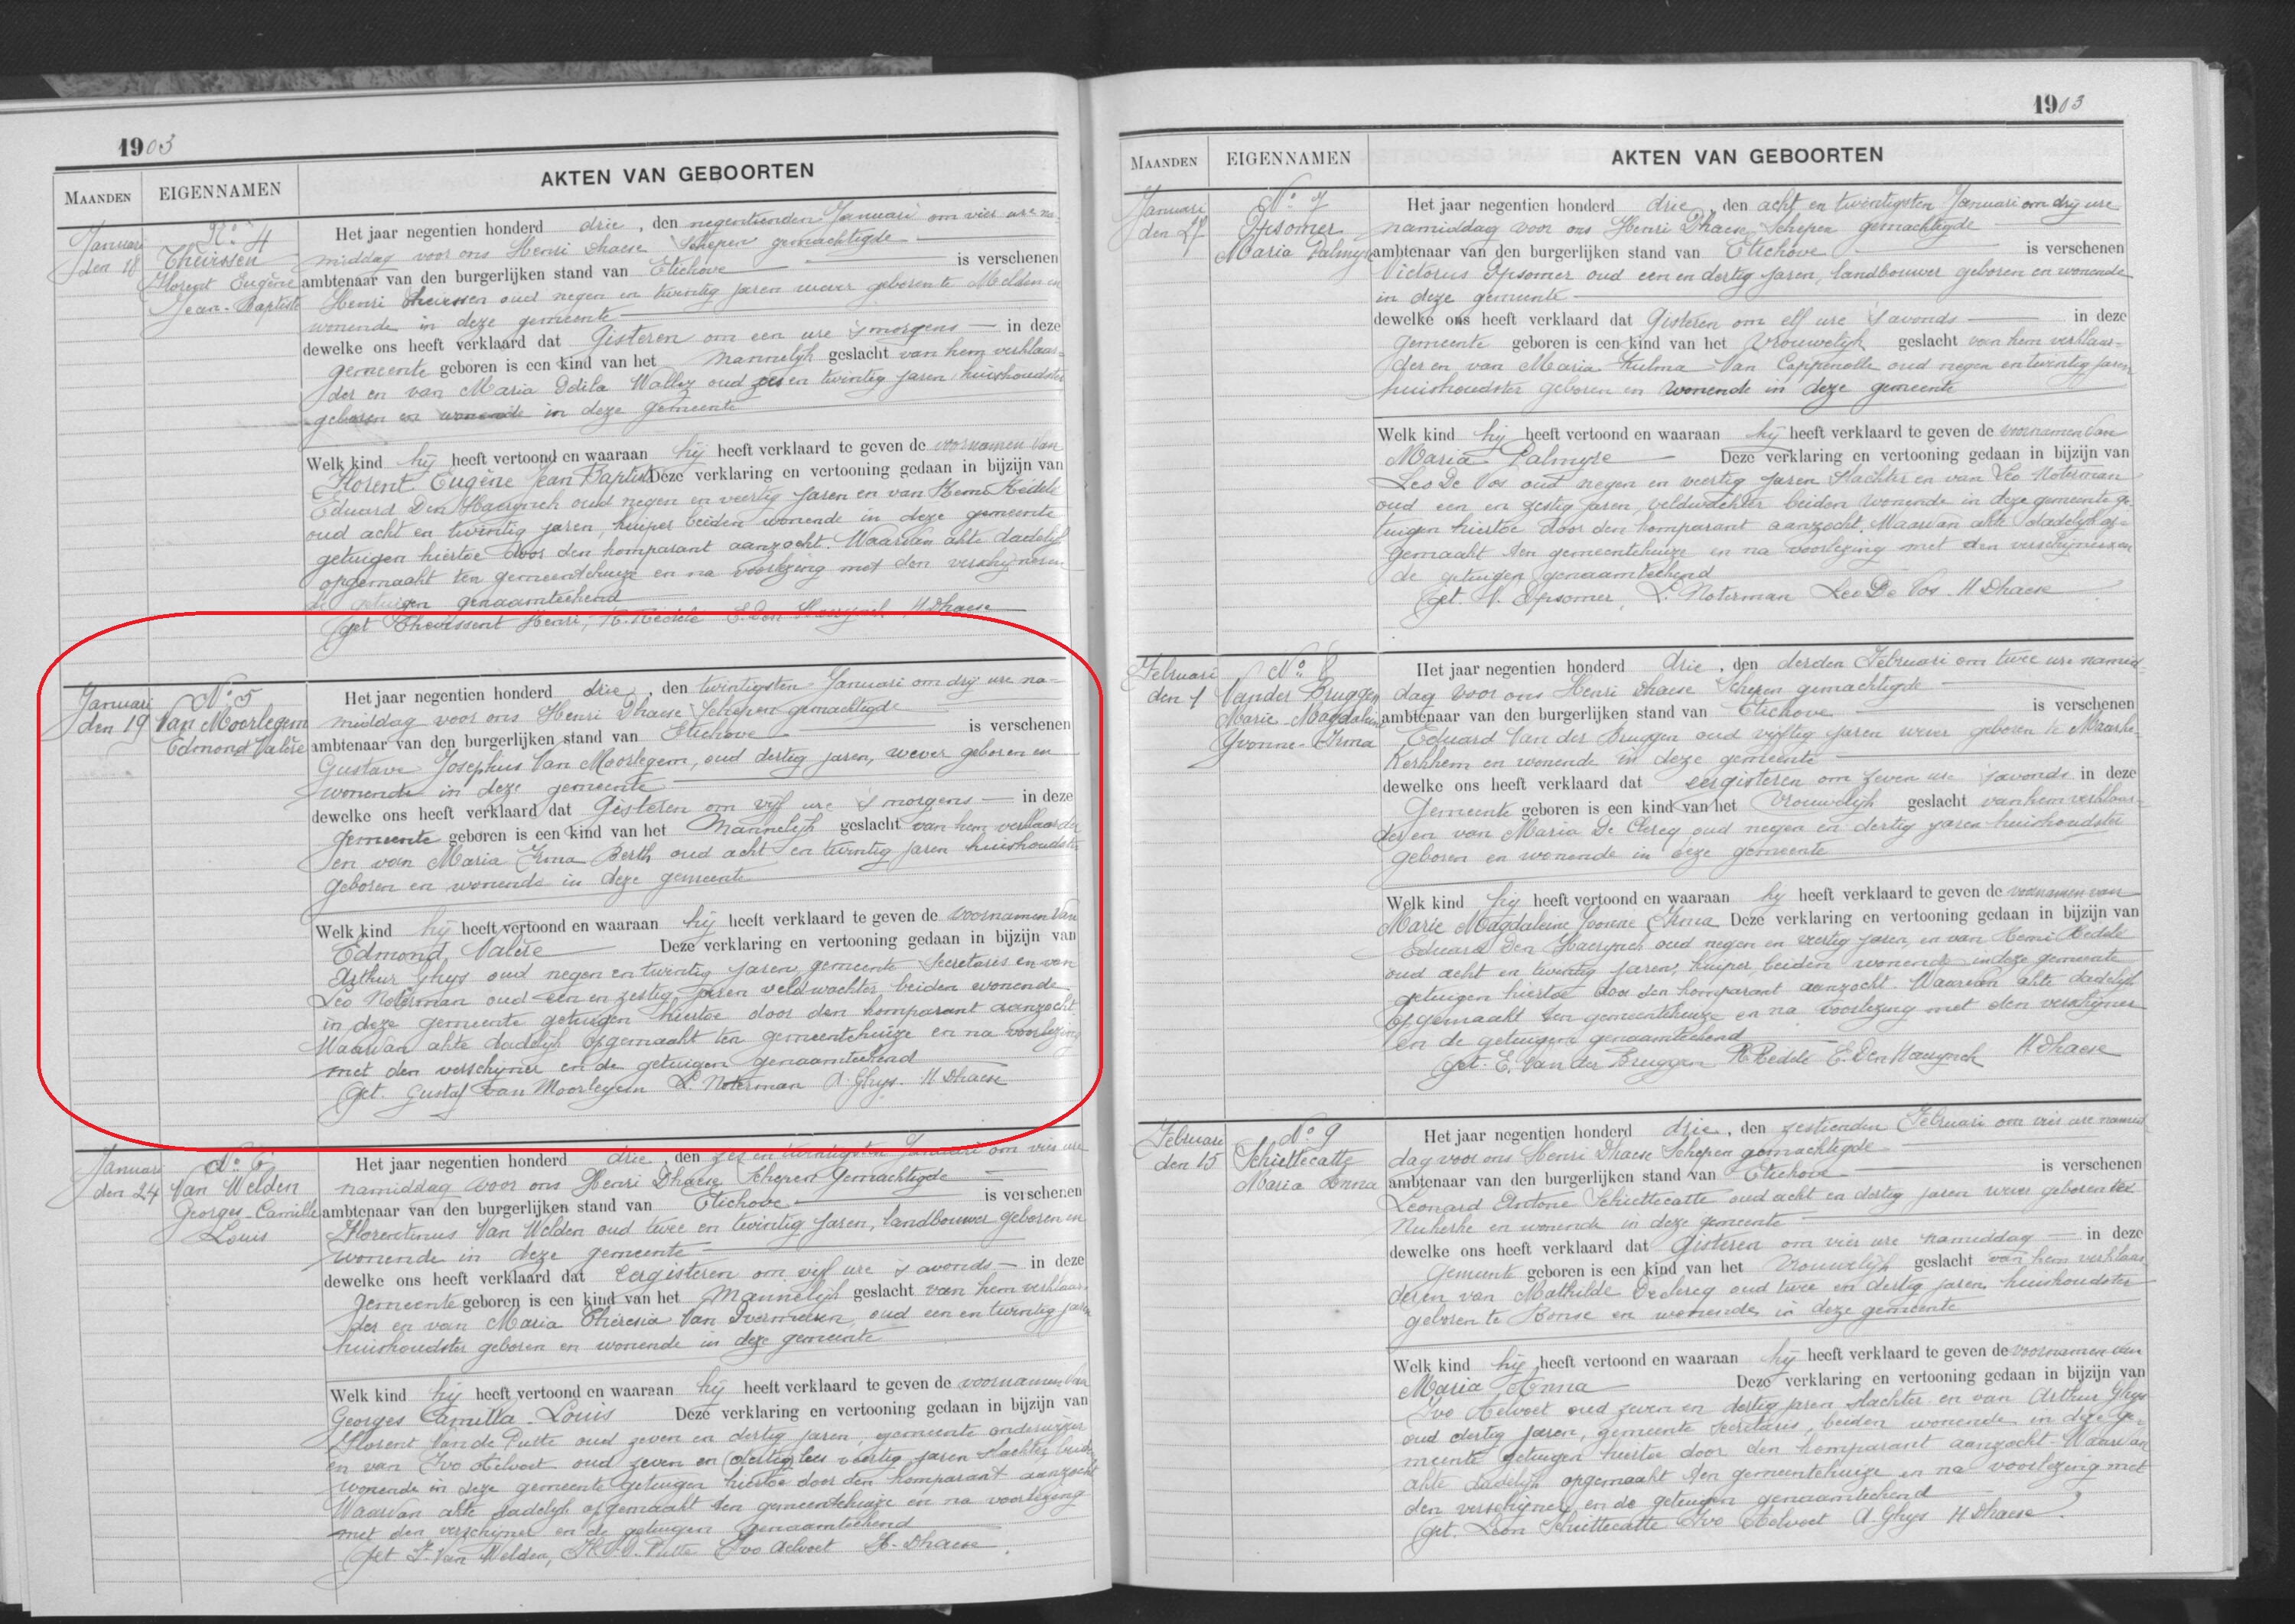 1903
MAANDEN
EIGENNAMEN
AKTEN VAN GEBOORTEN
Januari
den 18
No 4
Theirssen
Florent Eugène
Jean-Baptiste
Het jaar negentien honderd drie, den negentienden Januari om vier ure na-
middag voor ons Henri Dhaese Schepen gemachtigde
ambtenaar van den burgerlijken stand van Etichove is verschenen
Henri oud negen en twintig jaren wever geboren te Melden en
wonende in deze gemeente
dewelke ons heeft verklaard dat Gisteren om een ure 's morgens in deze
gemeente geboren is een kind van het Mannelijk geslacht van hem verklaar-
der en van Maria Odila Wallez oud zes en twintig jaren huishoudster
geboren en wonende in deze gemeente
Welk kind hij heeft vertoond en waaraan hij heeft verklaard te geven de voornamen van
Florent Eugène Jean Baptist Deze verklaring en vertooning gedaan in bijzijn van
Eduard Den Haerynck oud negen en veertig jaren en van Remi Redelé
oud acht en twintig jaren, kuiper beiden wonende in deze gemeente
getuigen hiertoe door den komparant aanzocht. Waarvan akte dadelijk
opgemaakt ten gemeentehuize en na voorlezing met den verschijner en
de getuigen genaamteekend
get Henri, R. Redelé E. Den Haerynck H Dhaese
Januari
den 19
No 5
Van Moorlegem
Edmond Valère
Het jaar negentien honderd drie, den twintigsten Januari om drij ure na-
middag voor ons Henri Dhaese Schepen gemachtigde
ambtenaar van den burgerlijken stand van Etichove is verschenen
Gustave Josephus Van Moorlegem, oud dertig jaren, wever geboren en
wonende in deze gemeente
dewelke ons heeft verklaard dat Gisteren om vijf ure 's morgens in deze
gemeente geboren is een kind van het Mannelijk geslacht van hem verklaarder
en van Maria Irma Berth oud acht en twintig jaren huishoudster
geboren en wonende in deze gemeente
Welk kind hij heeft vertoond en waaraan hij heeft verklaard te geven de voornamen van
Edmond Valère Deze verklaring en vertooning gedaan in bijzijn van
Arthur Ghys oud negen en twintig jaren, gemeente Secretaris en van
Leo Noterman oud een en zestig jaren veldwachter beiden wonende
in deze gemeente getuigen hiertoe door den komparant aanzocht
Waarvan akte dadelijk opgemaakt ten gemeentehuize en na voorlezing
met den verschijner en de getuigen genaamteekend
get. Gustaf van Moorlegem L. Noterman A. Ghys. H Dhaese
Januari
den 24
No 6
Van Welden
Georges-Camille
Louis
Het jaar negentien honderd drie, den zes en twintigsten Januari om vier ure
namiddag voor ons Henri Dhaese Schepen gemachtigde
ambtenaar van den burgerlijken stand van Etichove is verschenen
Florentinus Van Welden oud twee en twintig jaren, landbouwer geboren en
wonende in deze gemeente
dewelke ons heeft verklaard dat eergisteren om vijf ure 's avonds in deze
gemeente geboren is een kind van het Mannelijk geslacht van hem verklaar-
der en van Maria Theresia Van oud een en twintig jaren
huishoudster geboren en wonende in deze gemeente
Welk kind hij heeft vertoond en waaraan hij heeft verklaard te geven de voornamen van
Georges Camilla Louis Deze verklaring en vertooning gedaan in bijzijn van
Florent Van de Putte oud zeven en dertig jaren, gemeente onderwijzer
en van Ivo Aelvoet oud zeven en (dertig) lees veertig jaren slachter beiden
wonende in deze gemeente getuigen hiertoe door den komparant aanzocht
Waarvan akte dadelijk opgemaakt ten gemeentehuize en na voorlezing
met den verschijner en de getuigen genaamteekend
get F. Van Welden, Putte Ivo Aelvoet H. Dhaese
1903
MAANDEN
EIGENNAMEN
AKTEN VAN GEBOORTEN
Januari
den 27
No 7
Opsomer
Maria Palmyre
Het jaar negentien honderd drie, den acht en twintigsten Januari om drij ure
namiddag voor ons Henri Dhaese, Schepen gemachtigde
ambtenaar van den burgerlijken stand van Etichove is verschenen
Victorus Opsomer oud een en dertig jaren, landbouwer geboren en wonende
in deze gemeente
dewelke ons heeft verklaard dat Gisteren om elf ure 's avonds in deze
gemeente geboren is een kind van het Vrouwelijk geslacht van hem verklaar-
der en van Maria Zulma Van Cappenolle oud negen en twintig jaren
huishoudster geboren en wonende in deze gemeente
Welk kind hij heeft vertoond en waaraan hij heeft verklaard te geven de voornamen van
Maria Palmyre Deze verklaring en vertooning gedaan in bijzijn van
Leo De Vos oud negen en veertig jaren Slachter en van Leo Noterman
oud een en zestig jaren, veldwachter beiden wonende in deze gemeente ge-
tuigen hiertoe door den komparant aanzocht. Waarvan akte dadelijk op-
gemaakt ten gemeentehuize en na voorlezing met den verschijner en
de getuigen genaamteekend
get. V. Opsomer, L. Noterman Leo De Vos. H Dhaese
Februari
den 1
No 8
Vander Bruggen
Marie-Magdaleine
Yvonne-Irma
Het jaar negentien honderd drie, den derden Februari om twee ure namid-
dag voor ons Henri Dhaese Schepen gemachtigde
ambtenaar van den burgerlijken stand van Etichove is verschenen
Eduard Van der Bruggen oud vijftig jaren wever geboren te Maarke-
Kerkhem en wonende in deze gemeente
dewelke ons heeft verklaard dat eergisteren om zeven ure 's avonds in deze
Gemeente geboren is een kind van het Vrouwelijk geslacht van hem verklaar-
der en van Maria De Clercq oud negen en dertig jaren huishoudster
geboren en wonende in deze gemeente
Welk kind hij heeft vertoond en waaraan hij heeft verklaard te geven de voornamen van
Marie Magdaleine Yvonne Irma Deze verklaring en vertooning gedaan in bijzijn van
Eduard Den Haerynck oud negen en veertig jaren, en van Remi Redelé
oud acht en twintig jaren, kuiper, beiden wonende in deze gemeente
getuigen hiertoe door den komparant aanzocht. Waarvan akte dadelijk
opgemaakt ten gemeentehuize en na voorlezing met den verschijner
en de getuigen genaamteekend
get. E. Van der Bruggen R Redelé E. Den Haerynck H Dhaese
Februari
den 15
No 9
Schiettecatte
Maria Anna
Het jaar negentien honderd drie, den zestienden Februari om vier ure namid
dag voor ons Henri Dhaese Schepen gemachtigde
ambtenaar van den burgerlijken stand van Etichove is verschenen
Leonard Antone Schiettecatte oud acht en dertig jaren wever geboren te
Nukerke en wonende in deze gemeente
dewelke ons heeft verklaard dat Gisteren om vier ure namiddag in deze
Gemeente geboren is een kind van het Vrouwelijk geslacht van hem verklaar
der en van Mathilde Declercq oud twee en dertig jaren, huishoudster
geboren te Ronse en wonende in deze gemeente
Welk kind hij heeft vertoond en waaraan hij heeft verklaard te geven de voornamen van
Maria Anna Deze verklaring en vertooning gedaan in bijzijn van
Ivo Aelvoet oud zeven en dertig jaren slachter en van Arthur Ghys
oud dertig jaren, gemeente Secretaris, beiden wonende in deze ge-
meente getuigen hiertoe door den komparant aanzocht. Waarvan
akte dadelijk opgemaakt ten gemeentehuize en na voorlezing met
den verschijner en de getuigen genaamteekend
get. Leon Schiettecatte Ivo Aelvoet A Ghys H Dhaese